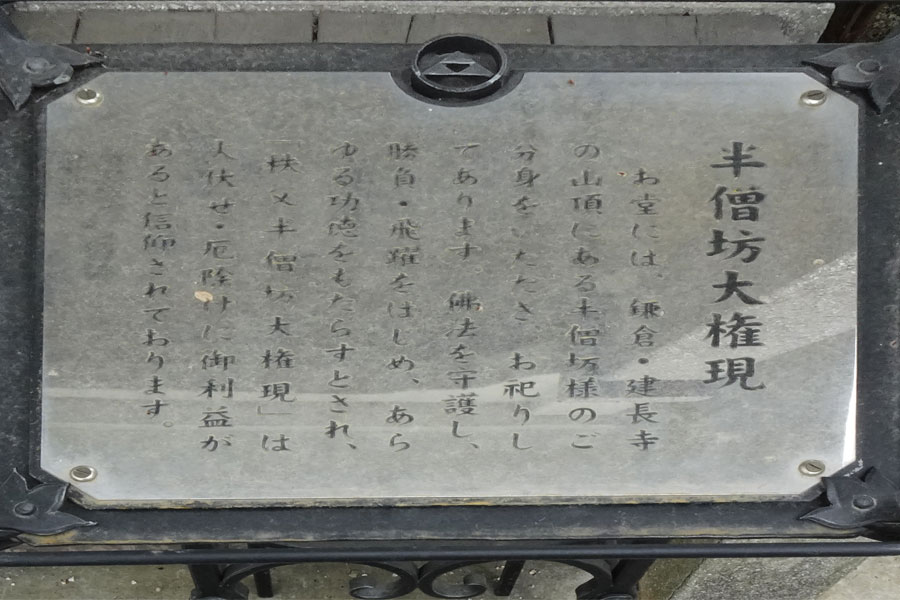 半僧坊大権現
お堂には、鎌倉・建長寺
の山頂にある半僧坊様のご
分身をいただき お祀りし
てあります 佛法を守護し、
勝負・飛躍をはじめ、あら
ゆる功徳をもたらすとされ、
半僧坊大権現」は
伏せ・厄除けに御利益が
あると信仰されております。